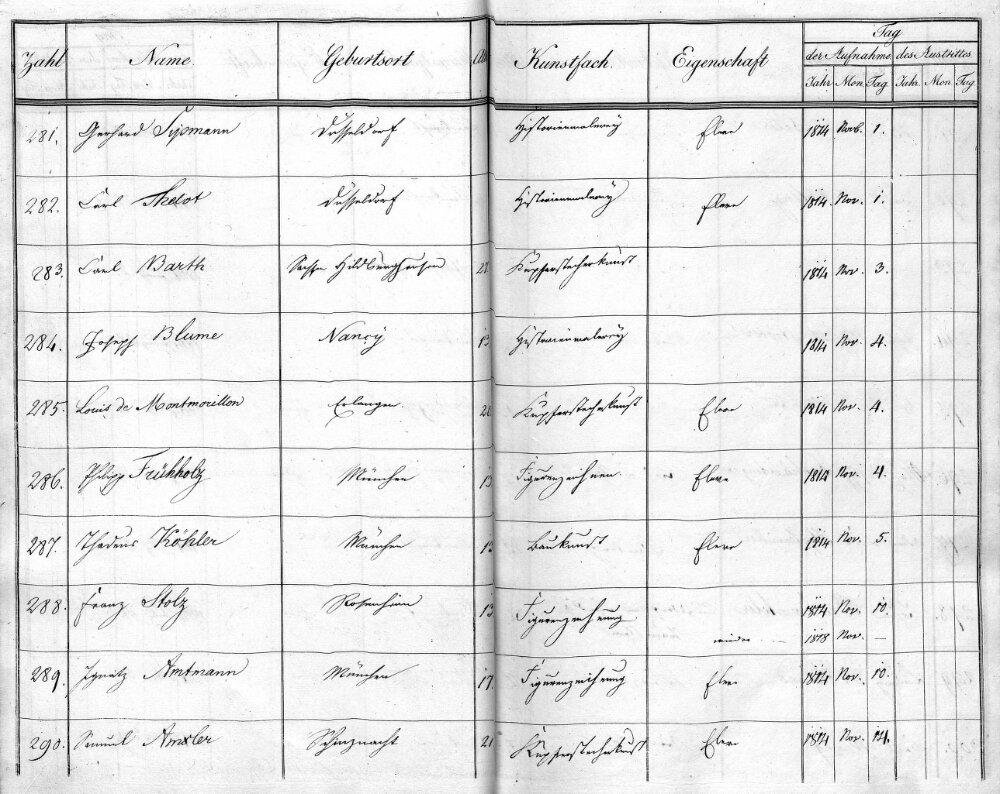 Zahl Name. Geburtsort Alter Kunstfach. Eigenschaft Tag
der Aufnahme des Austrittes
Jahr Mon. Tag Jahr. Mon. Tag
281. Gerhard Sipmann Düsseldorf Historienmalerey Eleve 1814 Novb. 1.
282. Carl Thelot Düsseldorf Historienmalerey Eleve 1814. Nov. 1.
283. Carl Barth Sachsen Hildburghausen Kupferstecherkunst 1814 Nov. 3.
284. Joseph Blume Nancy 13 Historienmalerey 1814 Nov. 4.
285. Louis de Montmorillon Erlangen. 20 Kupferstecherkunst Eleve 1814 Nov. 4.
286. Philipp Frühholz München 13 Figurenzeichnen Eleve 1814 Nov. 4.
287. Thadeus Köhler München 13 Baukunst Eleve 1814 Nov. 5.
288. Franz Stolz Rosenheim 13 Figurenzeichnung 1814 Nov. 10.
wieder 1818 Nov. —
289. Ignatz Amtmann München 17 Figurenzeichnung Eleve 1814 Nov. 10.
290. Samuel Amsler Schinznacht 21 Kupferstecherkunst Eleve 1814 Nov. 14.